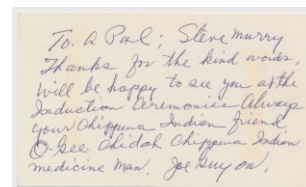 To. A Pal; Steve Murry
Thanks for the kind words,
will be happy to see you at the
Induction Ceremonies Always
your Chippewa Indian friend
O-Gee Chidah Chippewa Indian
medicine man. Joe Guyon.